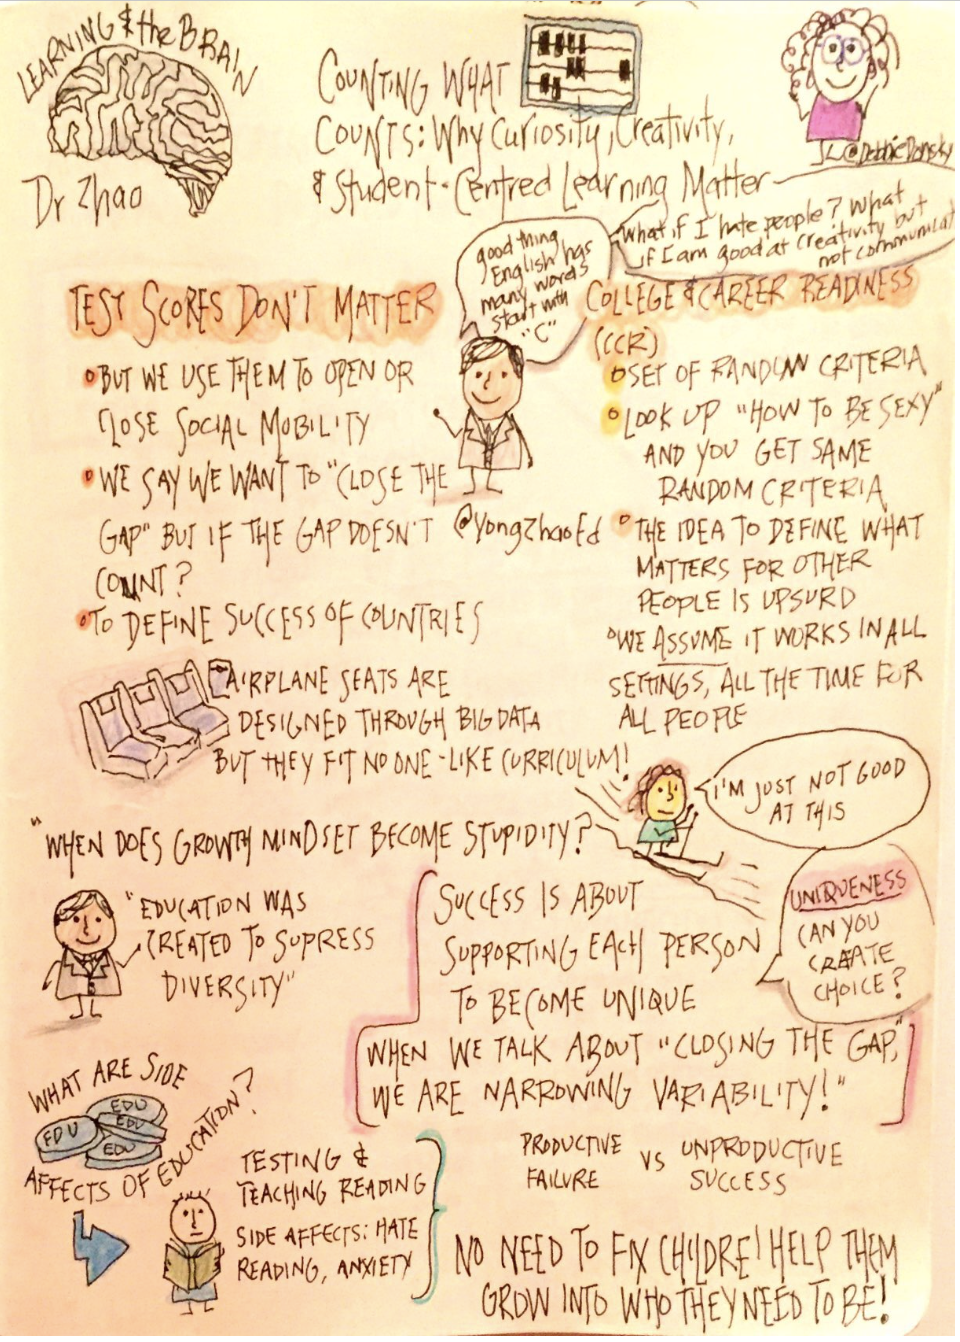 LEARNING & the BRAIN
Dr Zhao
COUNTING WHAT
COUNTS: Why Curiosity, Creativity,
& Student-Centred Learning Matter
@DebbieDonsky
good thing
English has
many words
start with
"C"
What if I hate people? What
if I am good at creativity but
not communicat
TEST SCORES DON'T MATTER
BUT WE USE THEM TO OPEN OR
CLOSE SOCIAL MOBILITY
WE SAY WE WANT TO "CLOSE THE
GAP" BUT IF THE GAP DOESN'T
COUNT?
TO DEFINE SUCCESS OF COUNTRIES
@YongZhaoEd
COLLEGE & CAREER READINESS
(CCR)
SET OF RANDOM CRITERIA
LOOK UP "HOW TO BE SEXY"
AND YOU GET SAME
RANDOM CRITERIA
THE IDEA TO DEFINE WHAT
MATTERS FOR OTHER
PEOPLE IS UPSURD
WE ASSUME IT WORKS IN ALL
SETTINGS, ALL THE TIME FOR
ALL PEOPLE
AIRPLANE SEATS ARE
DESIGNED THROUGH BIG DATA
BUT THEY FIT NO ONE - LIKE CURRICULUM!
I'M JUST NOT GOOD
AT THIS
"WHEN DOES GROWTH MINDSET BECOME STUPIDITY?
"EDUCATION WAS
CREATED TO SUPRESS
DIVERSITY"
SUCCESS IS ABOUT
SUPPORTING EACH PERSON
TO BECOME UNIQUE
WHEN WE TALK ABOUT "CLOSING THE GAP,"
WE ARE NARROWING VARIABILITY!"
UNIQUENESS
CAN YOU
CREATE
CHOICE?
WHAT ARE SIDE
EDU
EDU
EDU
EDU
AFFECTS OF EDUCATION?
TESTING &
TEACHING READING
SIDE AFFECTS: HATE
READING, ANXIETY
PRODUCTIVE
FAILURE
VS
UNPRODUCTIVE
SUCCESS
NO NEED TO FIX CHILDRE! HELP THEM
GROW INTO WHO THEY NEED TO BE!